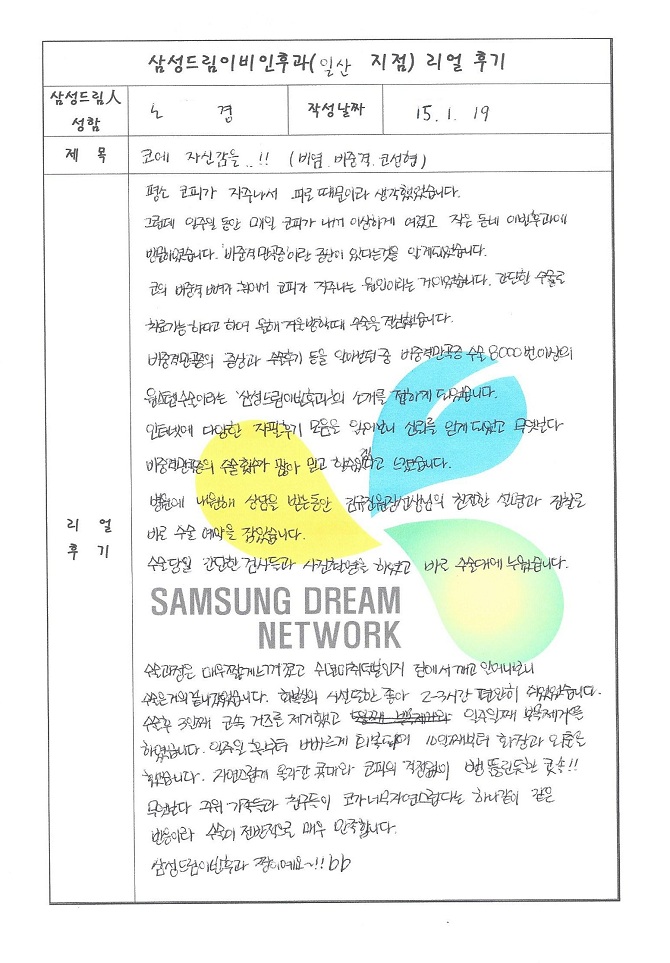 삼성드림이비인후과(일산 지점) 리얼 후기
삼성드림人 성함
노 경
작성날짜
15. 1. 19
제 목
코에 자신감을..!! (비염.비중격.코성형)
리 얼 후 기
평소 코피가 자주나서 피로 때문이라 생각했었습니다.
그런데 일주일 동안 매일 코피가 나서 이상하게 여겼고 작은 동네 이비인후과에
방문하였습니다. '비중격만곡증'이란 증상이 있다는것을 알게되었습니다.
코의 비중격 뼈가 휘어서 코피가 자주나는 원인이라는 것이었습니다. 간단한 수술로
치료가능하다고 하여 올해 겨울방학때 수술을 결심했습니다.
비중격만곡증의 증상과 수술후기 등을 알아보던 중 비중격만곡증 수술 8000번이상의
원스탑수술이라는 '삼성드림이비인후과'의 소개를 접하게 되었습니다.
인터넷에 다양한 자필후기 모음을 읽어보니 신뢰를 얻게되었고 무엇보다
비중격만곡증의 수술횟수가 많아 믿고 할수있겠다고 느꼈습니다.
병원에 내원해 상담을 받는동안 김유진원장선생님의 친절한 설명과 진찰로
바로 수술 예약을 잡았습니다.
수술당일 간단한 검사들과 사진촬영을 하였고 바로 수술대에 누웠습니다.
SAMSUNG DREAM
NETWORK
수술과정은 매우짧게느껴졌고 수면마취덕분인지 잠에서 깨고 일어나보니
수술은거의끝나있었습니다. 회복실의 시설또한 좋아 2-3시간 편안히 쉬었습니다.
수술후 3일째 코속 거즈를 제거했고 일주일째 부목제거를
하였습니다. 일주일 후부터 빠르게 회복되며 10일째부터 화장과 외출을
했습니다. 자연스럽게 올라간 콧대와 코피의 걱정없이 뻥 뚫린듯한 콧속!!
무엇보다 주위 가족들과 친구들이 코가너무자연스럽다는 하나같이 같은
반응이라 수술이 전반적으로 매우 만족합니다.
삼성드림이비인후과 짱이예요~!! bb